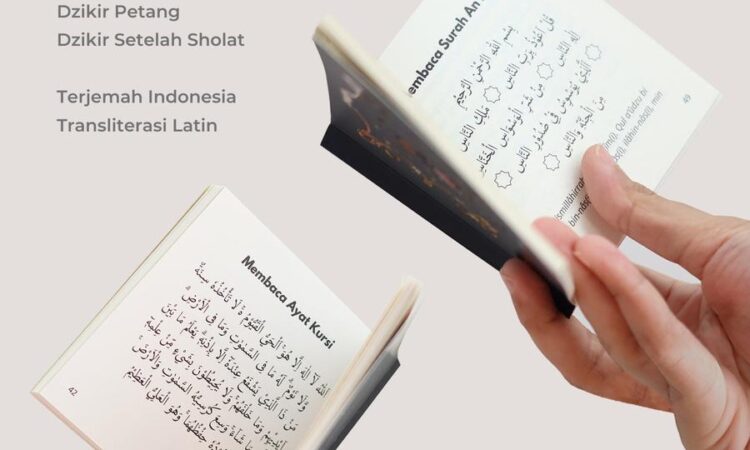 Dzikir Petang
Dzikir Setelah Sholat
Terjemah Indonesia
Transliterasi Latin
Membaca Surah An
بِسْمِ اللّٰهِ الرَّحْمٰنِ الرَّحِيْمِ
قُلْ اَعُوْذُ بِرَبِّ النَّاسِ ۞ مَلِكِ النَّاسِ
اِلٰهِ النَّاسِ ۞ مِنْ شَرِّ الْوَسْوَاسِ الْخَنَّاسِ
۞ الَّذِيْ يُوَسْوِسُ فِيْ صُدُوْرِ النَّاسِ
۞ مِنَ الْجِنَّةِ وَالنَّاسِ
49
Qul a'ûdzu bi
ilâhin-nâs(i), min
Membaca Ayat Kursi
اَللّٰهُ لَآ اِلٰهَ اِلَّا هُوَ الْحَيُّ الْقَيُّوْمُ ەۚ لَا تَأْخُذُهٗ سِنَةٌ
وَّلَا نَوْمٌۗ لَهٗ مَا فِى السَّمٰوٰتِ وَمَا فِى الْاَرْضِۗ
مَنْ ذَا الَّذِيْ يَشْفَعُ عِنْدَهٗٓ اِلَّا بِاِذْنِهٖۗ يَعْلَمُ مَا بَيْنَ
اَيْدِيْهِمْ وَمَا خَلْفَهُمْۚ وَلَا يُحِيْطُوْنَ بِشَيْءٍ مِّنْ عِلْمِهٖٓ
بِمَا شَاۤءَۚ وَسِعَ كُرْسِيُّهُ السَّمٰوٰتِ وَالْاَرْضَۚ
حِفْظُهُمَاۚ وَهُوَ الْعَلِيُّ الْعَظِيْمُ
42